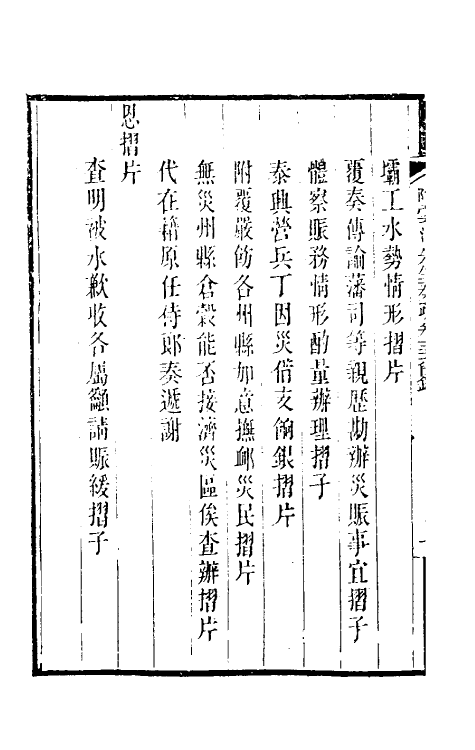 壩工水勢情形摺片
覆奏傳諭藩司等親歷勘辦災賑事宜摺子
體察賑務情形酌量辦理摺子
泰興營兵丁因災借支餉銀摺片
附覆嚴飭各州縣加意撫卹災民摺片
無災州縣倉穀能否接濟災區俟查辦摺片
代在籍原任侍郎奏遞謝
恩摺片
查明被水歉收各屬籲請賑緩摺子